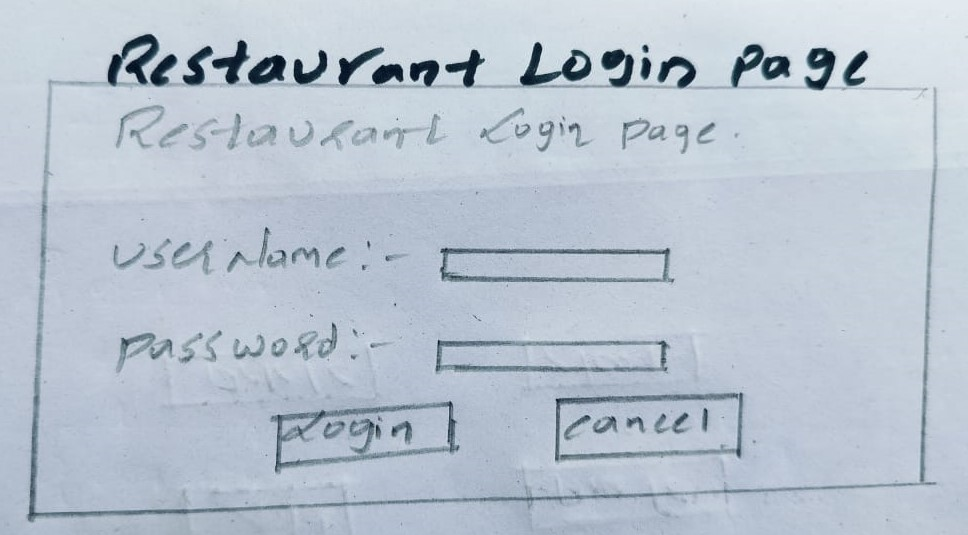 Restaurant Login page
Restaurant Login page.
userName:-
password:-
Login cancel